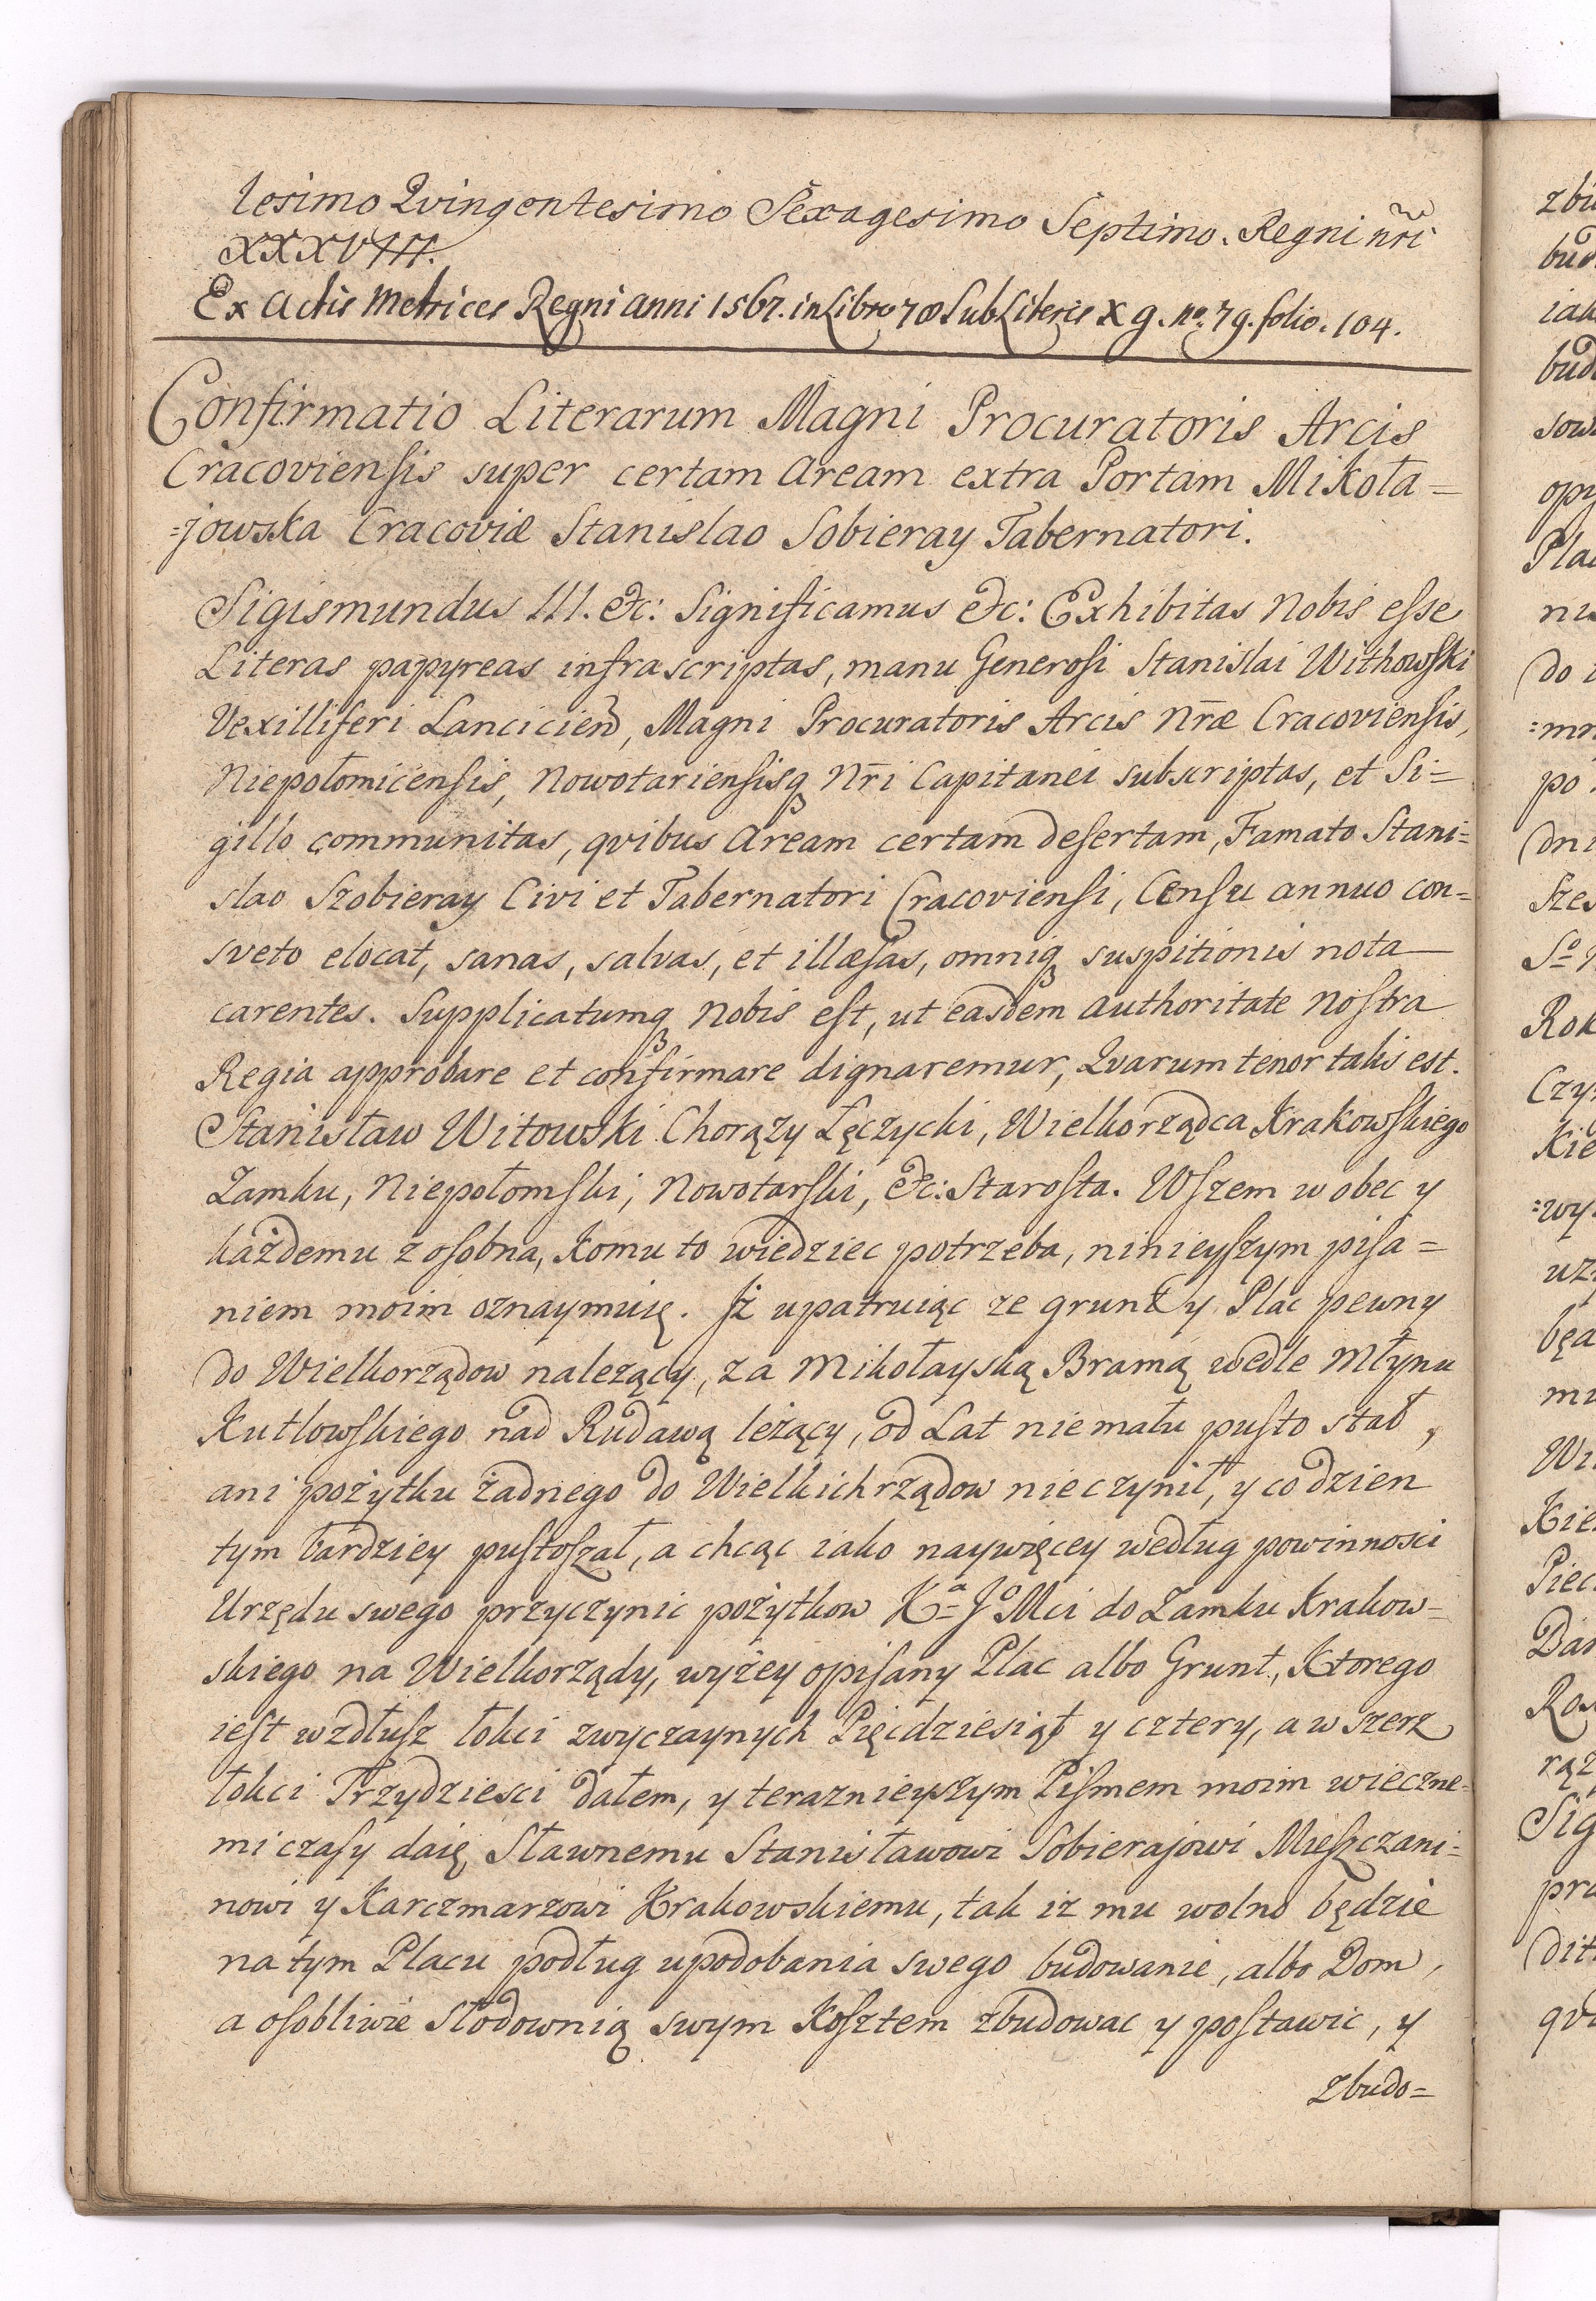 lesimo Qvingentesimo Sexagesimo Septimo. Regni nri
XXXVIII.
Ex Actis Metrices Regni anni 1567. in Libro 70 Sub Literis X g. no. 79. folio. 104.
Confirmatio Literarum Magni Procuratoris Arcis
Cracoviensis super certam Aream extra Portam Mikoła=
=jowska Cracoviæ Stanislao Sobieray Tabernatori.
Sigismundus III. etc: Significamus etc: Exhibitas Nobis esse
Literas papyreas infrascriptas, manu Generosi Stanislai Withowski
Vexilliferi Lancicien, Magni Procuratoris Arcis Nræ Cracoviensis,
Niepołomicensis, Nowotariensisq Nri Capitanei subscriptas, et Si=
gillo communitas, qvibus Aream certam desertam, Famato Stani=
slao Szobieray Civi et Tabernatori Cracoviensi, Censu annuo con=
sveto elocat, sanas, salvas, et illæsas, omniq suspitionis nota
carentes. Supplicatumq Nobis est, ut easdem Authoritate Nostra
Regia approbare et confirmare dignaremur, Qvarum tenor talis est.
Stanisław Witowski Chorąży Łęczycki, Wielkorządca Krakowskiego
Zamku, Niepołomski, Nowotarski, etc: Starosta. Wszem wobec y
każdemu z osobna, Komu to wiedziec potrzeba, ninieyszym pisa=
niem moim oznaymuię. Iż upatruiąc ze grunt y Plac pewny
do Wielkorządow nalezący, za Mikołayską Bramą wedle Młynu
Kutlowskiego nad Rudawą leżący, od Lat niemału pusto stał,
ani pożytku żadnego do Wielkichrządow nieczynił, y codzien
tym bardziey pustoszał, a chcąc iako naywięcey według powinnosci
Urzędu swego przyczynic pożytkow Ka Jo Mci do Zamku Krakow=
skiego na Wielkorządy, wyżey opisany Plac albo Grunt, Ktorego
iest wzdłusz łokci zwyczaynych Pięcdziesiąt y cztery, a w szerz
łokci Trzydziesci dałem, y teraznieyszym Pismem moim wieczne=
mi czasy daię Sławnemu Stanisławowi Sobierajowi Mieszczani=
nowi y Karczmarzowi Krakowskiemu, tak iz mu wolno będzie
na tym Placu podług upodobania swego budowanie, albo Dom,
a osobliwie Słodownią swym Kosztem zbudowac y postawic, y
zbudo=